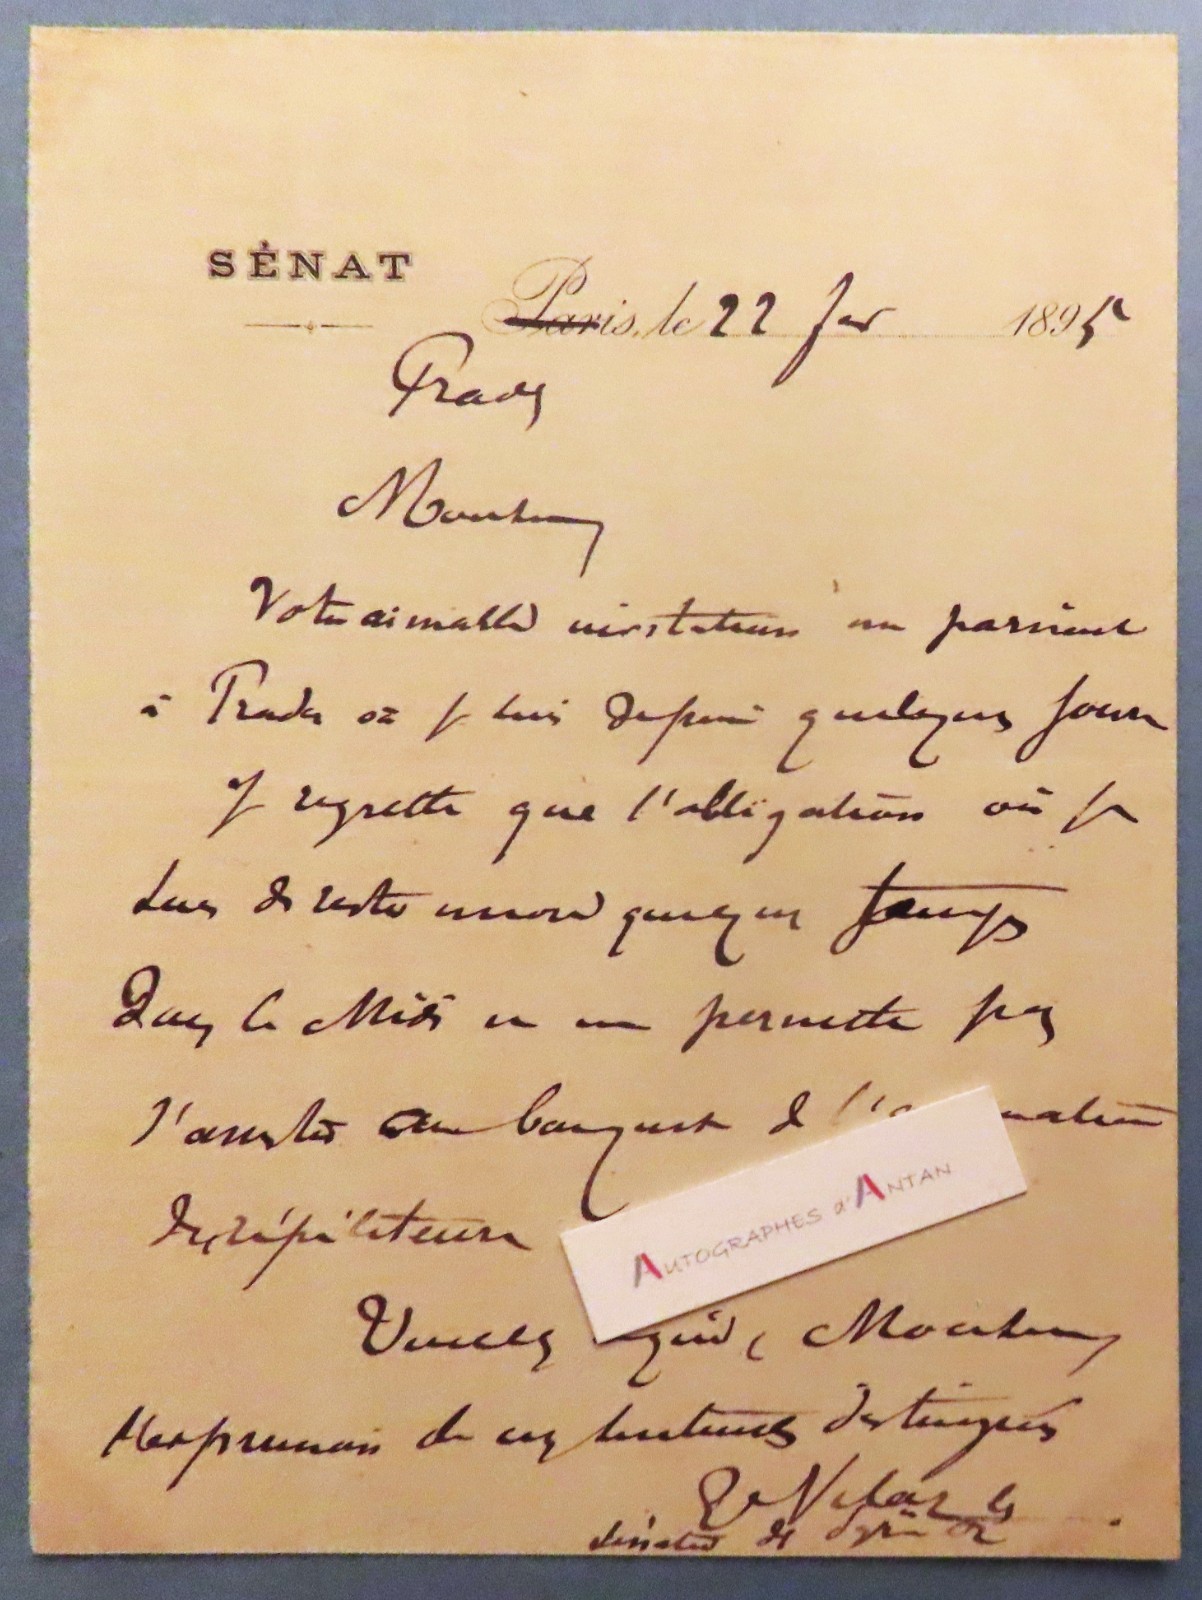 SÉNAT
Paris, le 22 Jer 1895
Prades
Monsieur,
Votre aimable invitation me parvient
à Prades où je suis depuis quelques jours
Je regrette que l'obligation où je
suis de rester encore quelque temps
Dans le Midi ne me permette pas
d'assister au banquet de l'a nation
des répétiteurs
Veuillez Monsieur
l'expression de mes sentiments distingués
E. Vilar
sénateur des Pyrénées Or
AUTOGRAPHES d'ANTAN